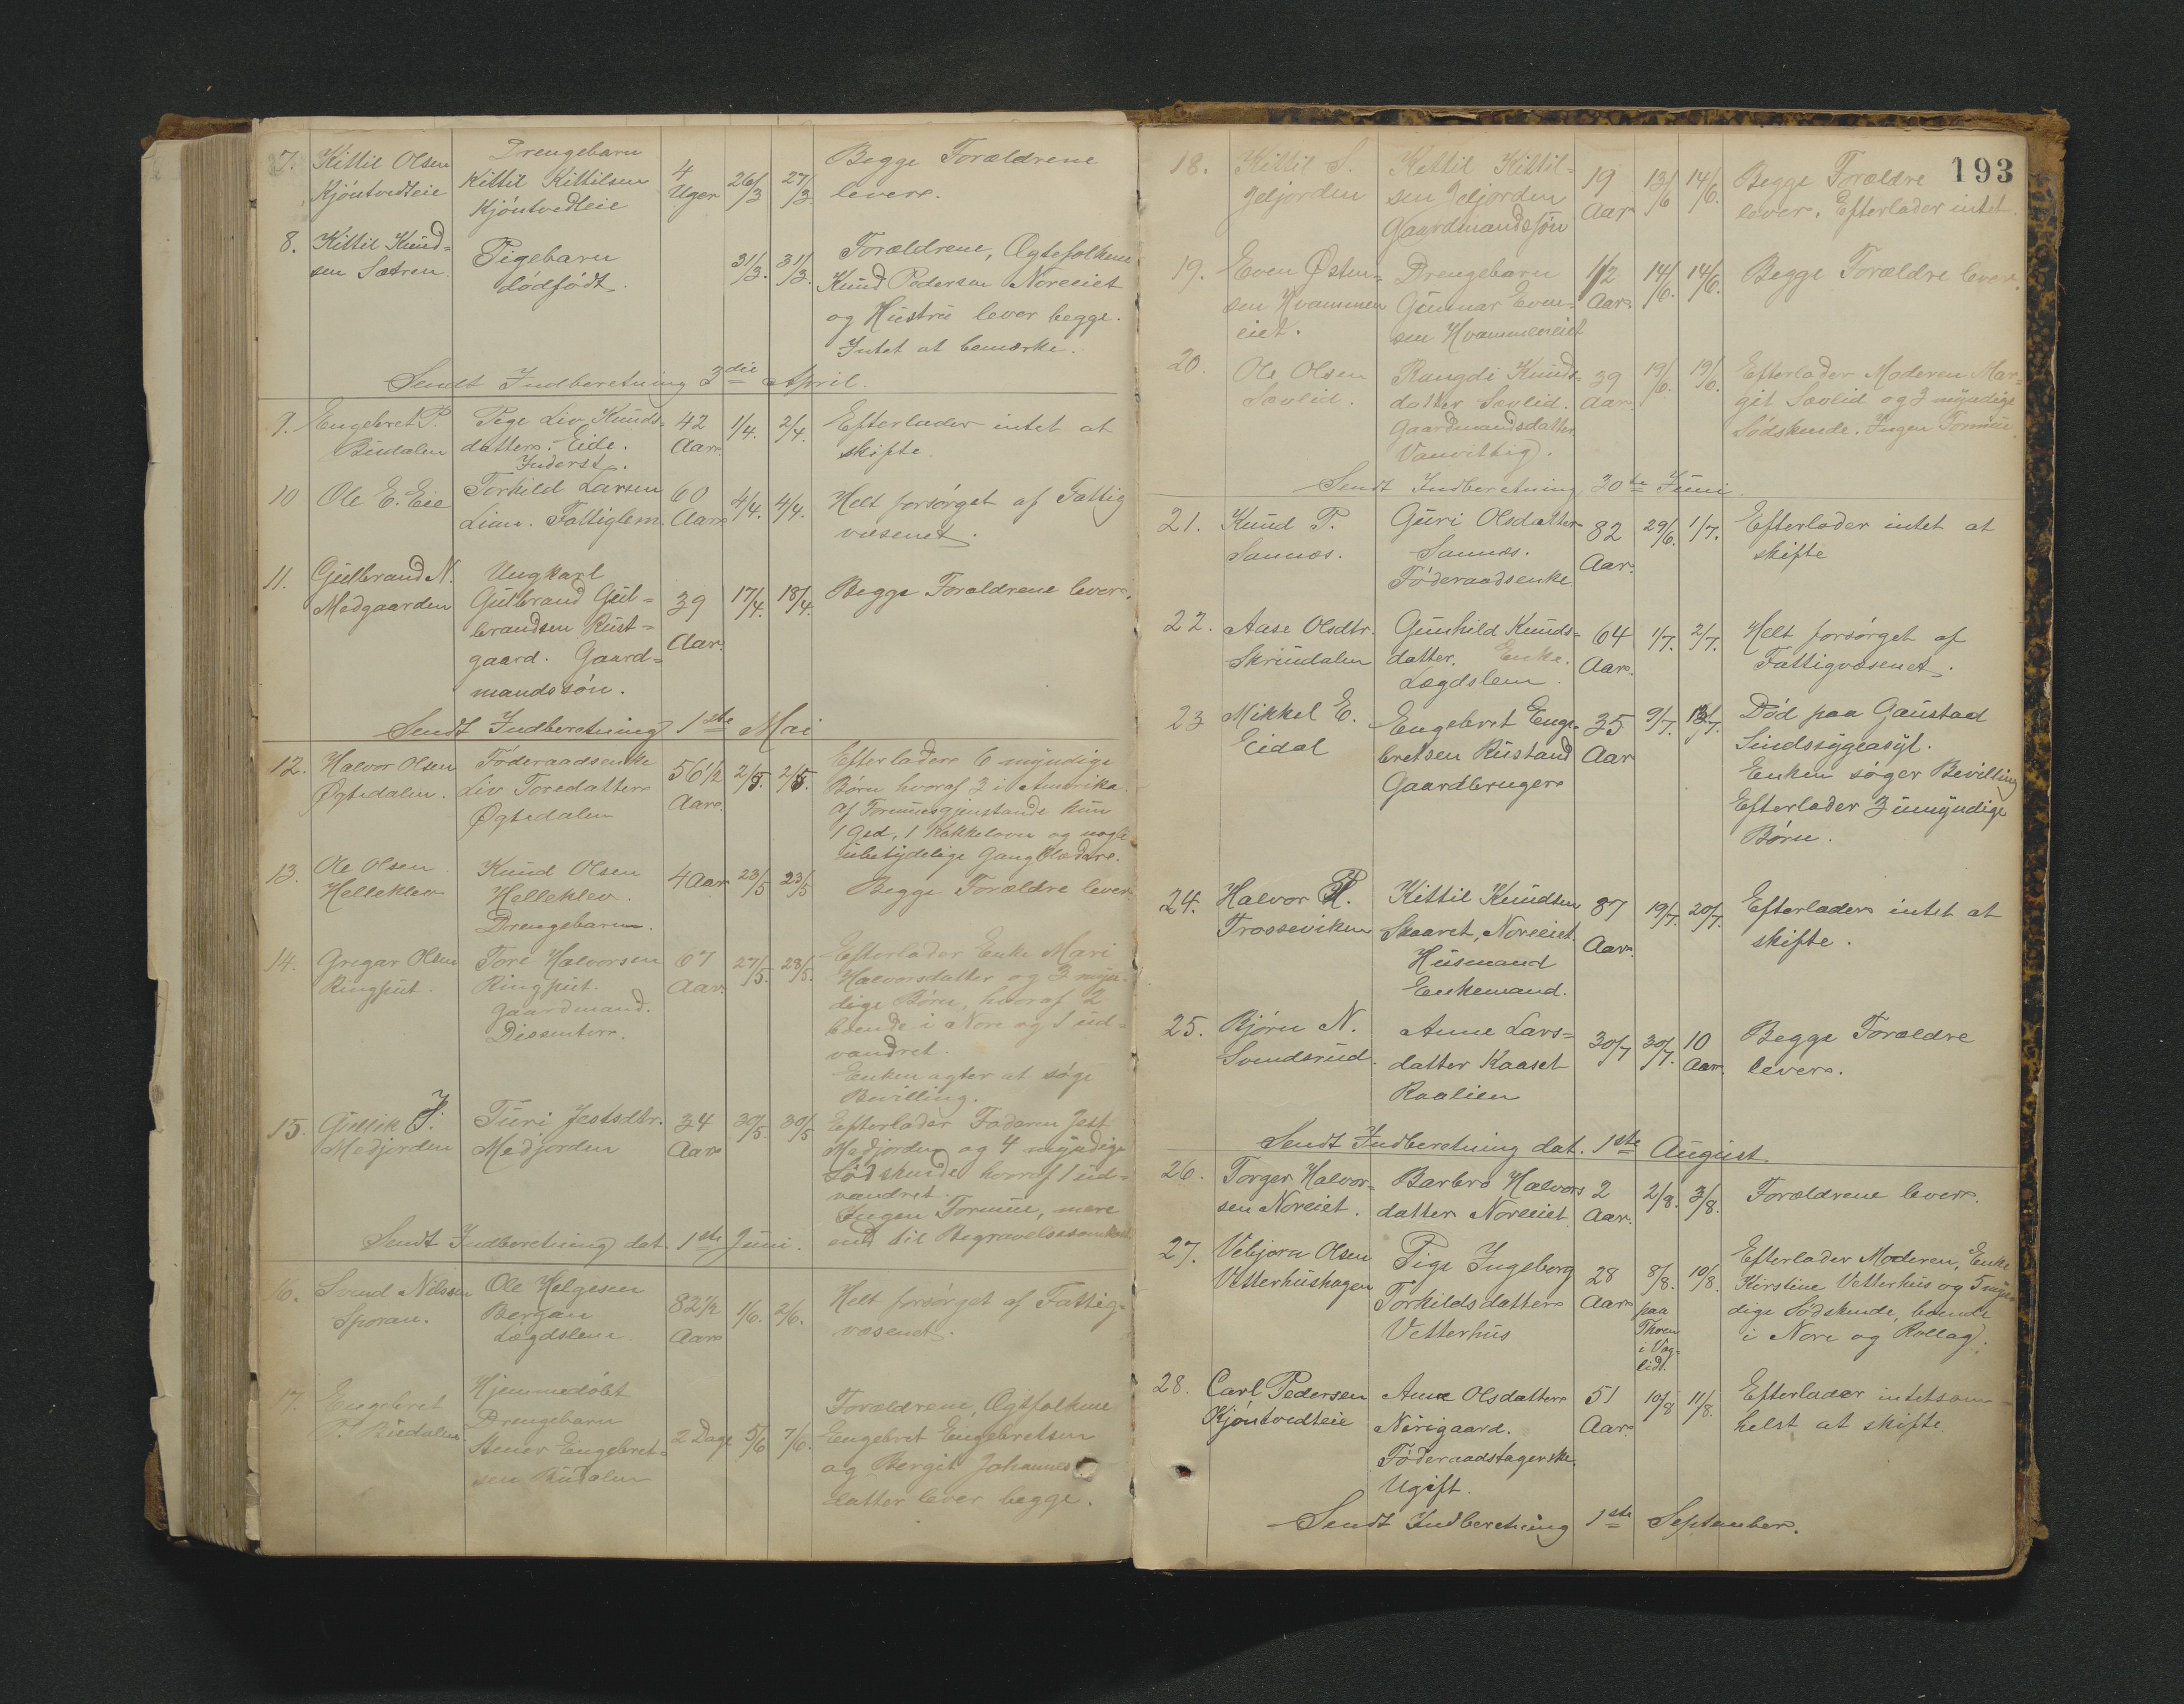 7. Kittil Olsen
Kjöntvedteie
Drengebarn
Kittil Kittilsen
Kjöntvedteie
4
Uger
26/3
27/3
Begge Forældrene
lever.
8. Kittil Knud=
sen Sætren.
Pigebarn
dödfödt.
31/3.
31/3.
Forældrene, Ægtefolkene
Knud Pedersen Noreeiet
og Hustru lever begge.
Intet at bemærke.
Sendt Indberetning 3die April.
9. Engebret P.
Budalen
Pige Liv Knuds=
datter Eide.
Inderst.
42
Aar.
1/4.
2/4.
Efterlader intet at
skifte.
10 Ole E. Eie
Torkild Larsen
Lien. Fattiglem.
60
Aar
4/4.
4/4.
Helt forsörget af Fattig
væsenet.
11. Gulbrand N.
Medgaarden
Ungkarl
Gulbrand Gul=
brandsen Rust=
gaard. Gaard=
mandssön.
39
Aar.
17/4.
18/4.
Begge Forældrene lever.
Sendt Indberetning 1ste Mai
12. Halvor Olsen
Ögtedalen.
Föderaadsenke
Liv Toredatter
Ögtedalen
56 1/2
Aar.
2/5.
2/5.
Efterlader 6 myndige
Börn hvoraf 3 i Amerika.
Af Formuesgjenstande kun
1 Ged, 1 Kakkelovn og nogle
ubetydelige Gangklæder.
13. Ole Olsen
Helleklev
Knud Olsen
Helleklev.
Drengebarn.
4 Aar
23/5
23/5
Begge Forældre lever.
14. Gregar Olsen
Ringput.
Tore Halvorsen
Ringput.
Gaardmand.
Dissenter.
67
Aar.
27/5.
28/5.
Efterlader Enke Mari
Halvorsdatter og 3 myn=
dige Börn, hvoraf 2
boende i Nore og 1 ud=
vandret.
Enken agter at söge
Bevilling.
15. Gullik J.
Medjorden
Turi Jestsdtr.
Medjorden
34
Aar
30/5.
30/5
Efterlader Faderen Jest
Medjorden og 4 myndige
Södskende hvoraf 1 ud=
vandret.
Ingen Formue, mere
end til Begravelsesomkost.
Sendt Indberetning dat. 1ste Juni.
16. Svend Nilssen
Sporan.
Ole Helgesen
Bergan
Lægdslem.
82 1/2
Aar
1/6.
2/6.
Helt forsörget af Fattig=
væsenet.
17. Engebret
P. Budalen
Hjemmedöbt
Drengebarn
Stener Engebret=
sen Budalen
2 Dage
5/6
7/6.
Forældrene, Ægtefolkene
Engebret Engebretsen
og Bergit Johannes
datter lever begge.
193
18. Kittil S.
Jeljorden
Kittil Kittil=
sen Jeljorden
Gaardmandssön
19
Aar
13/6
14/6.
Begge Forældre
lever. Efterlader intet.
19. Even Østen=
sen Hvammen
eiet.
Drengebarn
Gunnar Even=
sen Hvammeneiet
1/2
Aar.
14/6.
14/6.
Begge Forældre lever.
20. Ole Olsen
Sævlid.
Rangdi Knuds=
datter Sevlid.
Gaardmandsdatter
Vanvittig.
39
Aar.
19/6.
19/6.
Efterlader Moderen Mar=
git Sævlid og 3 myndige
Södskende. Ingen Formue.
Sendt Indberetning 30te Juni.
21. Knud P.
Sannæs.
Guri Olsdatter
Sannæs.
Föderaadsenke
82
Aar.
29/6.
1/7.
Efterlader intet at
skifte
22. Aase Olsdtr.
Skrudalen
Gunhild Knuds=
datter. Enke.
Lægdslem.
64
Aar.
1/7.
2/7.
Helt forsörget af
Fattigvæsenet.
23 Mikkel E.
Eidal
Engebret Enge=
bretsen Rustand
Gaardbruger
35
Aar
9/7.
Död paa Gaustad
Sindssygeasyl.
Enken söger Bevilling
Efterlader 3 umyndige
Börn.
24. Halvor H.
Trosseviken
Kittil Knudsen
Skaaret, Noreeiet.
Husmand
Enkemand.
87
Aar.
19/7.
20/7.
Efterlader intet at
skifte.
25. Björn N.
Svendsrud.
Anne Lars=
datter Kaaset
Raalien
30/7
30/7.
10
Aar.
Begge Forældre
lever.
Sendt Indberetning dat. 1ste August.
26. Torger Halvor=
sen Noreiet.
Barbro Halvors
datter Noreeiet
2
Aar.
2/8.
3/8.
Forældrene lever.
27. Vebjörn Olsen
Vetterhushagen
Pige Ingeborg
Torkildsdatter
Vetterhus
28
Aar
8/8.
paa
Thoen
i Veg=
lid.
10/8.
Efterlader Moderen, Enke
Kirstine Vetterhus og 7 myn=
dige Södskende, boende
i Nore og Rollag.
28. Carl Pedersen
Kjöntvedteie
Anne Olsdatter
Nörigaard.
Föderaadstagerske.
Ugift.
51
Aar.
10/8
11/8.
Efterlader intetsom=
helst at skifte
Sendt Indberetning 1ste September.